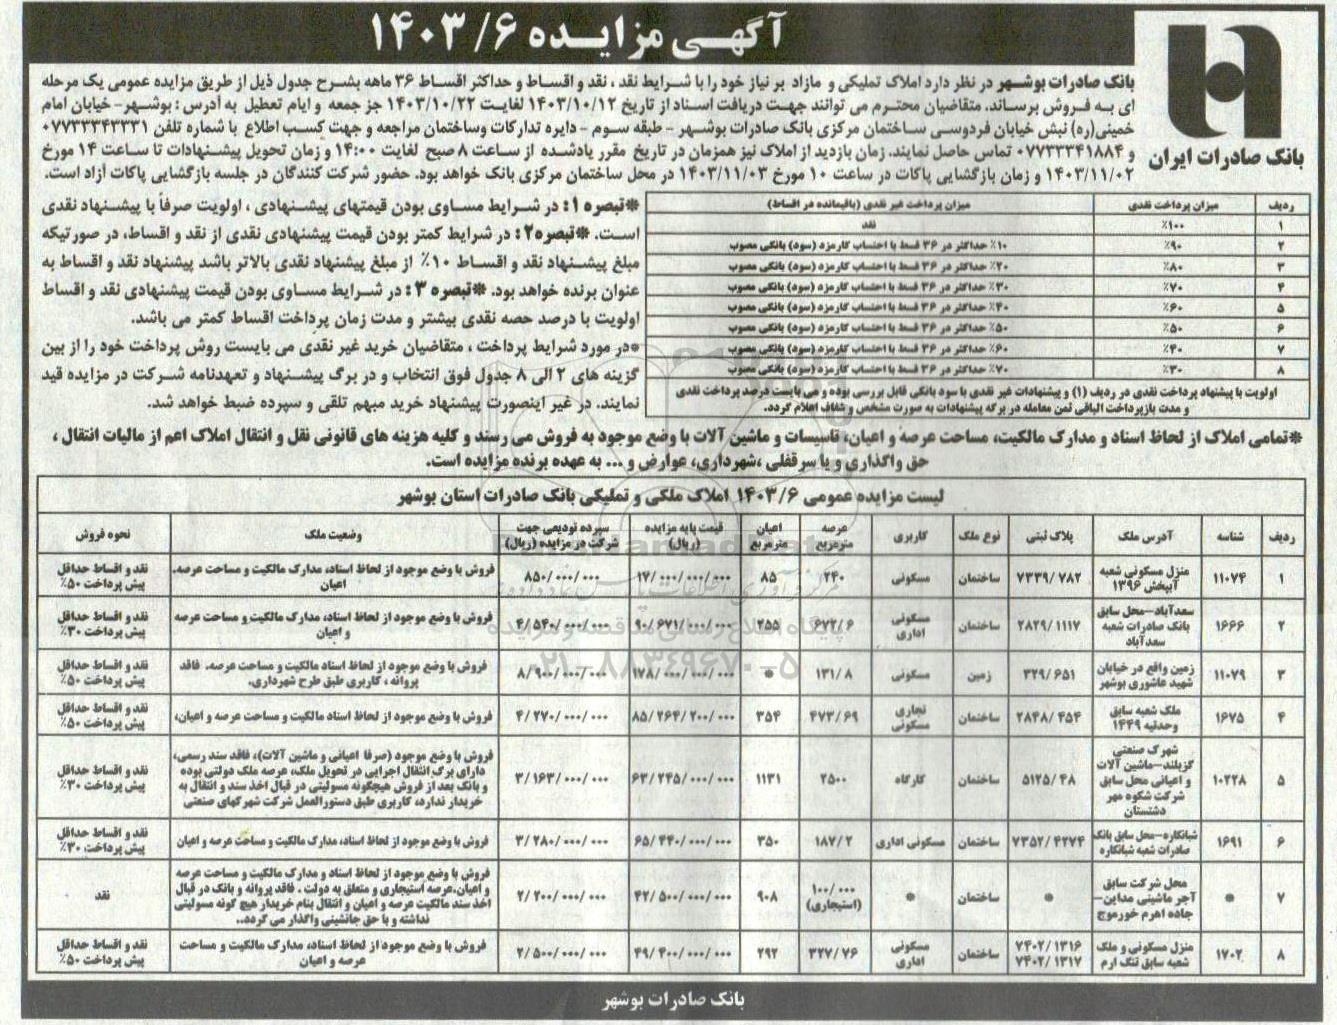 آگهی مزایده ۱۴۰۳/۶
بانک صادرات ایران
بانک صادرات بوشهر در نظر دارد املاک تملیکی و مازاد بر نیاز خود را با شرایط نقد ، نقد و اقساط و حداکثر اقساط ۳۶ ماهه بشرح جدول ذیل از طریق مزایده عمومی یک مرحله
ای به فروش برساند. متقاضیان محترم می توانند جهت دریافت اسناد از تاریخ ۱۴۰۳/۱۰/۱۲ لغایت ۱۴۰۳/۱۰/۲۲ جز جمعه و ایام تعطیل به آدرس : بوشهر- خیابان امام
خمینی(ره) نبش خیابان فردوسی ساختمان مرکزی بانک صادرات بوشهر - طبقه سوم - دایره تدارکات وساختمان مراجعه و جهت کسب اطلاع با شماره تلفن ۰۷۷۳۳۳۴۳۳۳۱
و ۰۷۷۳۳۳۴۱۸۸۴ تماس حاصل نمایند. زمان بازدید از املاک نیز همزمان در تاریخ مقرر یادشده از ساعت ۸ صبح لغایت ۱۴:۰۰ و زمان تحویل پیشنهادات تا ساعت ۱۴ مورخ
۱۴۰۳/۱۱/۰۲ و زمان بازگشایی پاکات در ساعت ۱۰ مورخ ۱۴۰۳/۱۱/۰۳ در محل ساختمان مرکزی بانک خواهد بود. حضور شرکت کنندگان در جلسه بازگشایی پاکات آزاد است.
ردیف میزان پرداخت نقدی میزان پرداخت غیر نقدی (باقیمانده در اقساط)
۱ ٪۱۰۰ نقد
۲ ٪۹۰ ٪۱۰ حداکثر در ۳۶ قسط با احتساب کارمزد (سود) بانکی مصوب
۳ ٪۸۰ ٪۲۰ حداکثر در ۳۶ قسط با احتساب کارمزد (سود) بانکی مصوب
۴ ٪۷۰ ٪۳۰ حداکثر در ۳۶ قسط با احتساب کارمزد (سود) بانکی مصوب
۵ ٪۶۰ ٪۴۰ حداکثر در ۳۶ قسط با احتساب کارمزد (سود) بانکی مصوب
۶ ٪۵۰ ٪۵۰ حداکثر در ۳۶ قسط با احتساب کارمزد (سود) بانکی مصوب
۷ ٪۴۰ ٪۶۰ حداکثر در ۳۶ قسط با احتساب کارمزد (سود) بانکی مصوب
۸ ٪۳۰ ٪۷۰ حداکثر در ۳۶ قسط با احتساب کارمزد (سود) بانکی مصوب
اولویت با پیشنهاد پرداخت نقدی در ردیف (۱) و پیشنهادات غیر نقدی با سود بانکی قابل بررسی بوده و می بایست درصد پرداخت نقدی
و مدت بازپرداخت الباقی ثمن معامله در برگه پیشنهادات به صورت مشخص و شفاف اعلام گردد.
*تبصره ۱: در شرایط مساوی بودن قیمتهای پیشنهادی ، اولویت صرفاً با پیشنهاد نقدی
است. *تبصره۲: در شرایط کمتر بودن قیمت پیشنهادی نقدی از نقد و اقساط، در صورتیکه
مبلغ پیشنهاد نقد و اقساط ۱۰٪ از مبلغ پیشنهاد نقدی بالاتر باشد پیشنهاد نقد و اقساط به
عنوان برنده خواهد بود. *تبصره ۳: در شرایط مساوی بودن قیمت پیشنهادی نقد و اقساط
اولویت با درصد حصه نقدی بیشتر و مدت زمان پرداخت اقساط کمتر می باشد.
*در مورد شرایط پرداخت ، متقاضیان خرید غیر نقدی می بایست روش پرداخت خود را از بین
گزینه های ۲ الی ۸ جدول فوق انتخاب و در برگ پیشنهاد و تعهدنامه شرکت در مزایده قید
نمایند. در غیر اینصورت پیشنهاد خرید مبهم تلقی و سپرده ضبط خواهد شد.
*تمامی املاک از لحاظ اسناد و مدارک مالکیت، مساحت عرصه و اعیان، تاسیسات و ماشین آلات با وضع موجود به فروش می رسند و کلیه هزینه های قانونی نقل و انتقال املاک اعم از مالیات انتقال ،
حق واگذاری و یا سرقفلی ،شهرداری، عوارض و ... به عهده برنده مزایده است.
لیست مزایده عمومی ۱۴۰۳/۶ املاک ملکی و تملیکی بانک صادرات استان بوشهر
ردیف شناسه آدرس ملک پلاک ثبتی نوع ملک کاربری عرصه مترمربع اعیان مترمربع قیمت پایه مزایده (ریال) سپرده تودیعی جهت شرکت در مزایده (ریال) وضعیت ملک نحوه فروش
۱ ۱۱۰۷۴ منزل مسکونی شعبه آبپخش ۱۳۹۶ ۷۳۳۹/۷۸۲ ساختمان مسکونی ۲۴۰ ۸۵ ۱۷/۰۰۰/۰۰۰/۰۰۰ ۸۵۰/۰۰۰/۰۰۰ فروش با وضع موجود از لحاظ اسناد، مدارک مالکیت و مساحت عرصه. اعیان نقد و اقساط حداقل پیش پرداخت ۵۰٪
۲ ۱۶۶۶ سعدآباد-محل سابق بانک صادرات شعبه سعدآباد ۲۸۲۹/۱۱۱۷ ساختمان مسکونی اداری ۶۷۲/۶ ۲۵۵ ۹۰/۶۷۱/۰۰۰/۰۰۰ ۴/۵۴۰/۰۰۰/۰۰۰ فروش با وضع موجود از لحاظ اسناد، مدارک مالکیت و مساحت عرصه و اعیان نقد و اقساط حداقل پیش پرداخت ۳۰٪
۳ ۱۱۰۷۹ زمین واقع در خیابان شهید عاشوری بوشهر ۳۲۹/۶۵۱ زمین مسکونی ۱۳۱/۸ * ۱۷۸/۰۰۰/۰۰۰/۰۰۰ ۸/۹۰۰/۰۰۰/۰۰۰ فروش با وضع موجود از لحاظ اسناد مالکیت و مساحت عرصه. فاقد پروانه ، کاربری طبق طرح شهرداری. نقد و اقساط حداقل پیش پرداخت ۵۰٪
۴ ۱۶۷۵ ملک شعبه سابق وحدتیه ۱۴۴۹ ۲۸۴۸/۴۵۴ ساختمان تجاری مسکونی ۴۷۳/۶۹ ۳۵۴ ۸۵/۲۶۴/۲۰۰/۰۰۰ ۴/۲۷۰/۰۰۰/۰۰۰ فروش با وضع موجود از لحاظ اسناد مالکیت و مساحت عرصه و اعیان، نقد و اقساط حداقل پیش پرداخت ۵۰٪
۵ ۱۰۲۲۸ شهرک صنعتی گزبلند-ماشین آلات و اعیانی محل سابق شرکت شکوه مهر دشتستان ۵۱۲۵/۴۸ ساختمان کارگاه ۲۵۰۰ ۱۱۳۱ ۶۳/۲۴۵/۰۰۰/۰۰۰ ۳/۱۶۳/۰۰۰/۰۰۰ فروش با وضع موجود (صرفا اعیانی و ماشین آلات)، فاقد سند رسمی، دارای برگ انتقال اجرایی در تحویل ملک، عرصه ملک دولتی بوده و بانک بعد از فروش هیچگونه مسولیتی در قبال اخذ سند و انتقال به خریدار ندارد، کاربری طبق دستورالعمل شرکت شهرکهای صنعتی نقد و اقساط حداقل پیش پرداخت ۳۰٪
۶ ۱۶۹۱ شبانکاره-محل سابق بانک صادرات شعبه شبانکاره ۷۳۵۲/۴۲۷۴ ساختمان مسکونی اداری ۱۸۷/۲ ۳۵۰ ۶۵/۴۴۰/۰۰۰/۰۰۰ ۳/۲۸۰/۰۰۰/۰۰۰ فروش با وضع موجود از لحاظ اسناد، مدارک مالکیت و مساحت عرصه و اعیان نقد و اقساط حداقل پیش پرداخت ۳۰٪
۷ * محل شرکت سابق آجر ماشینی مداین- جاده اهرم خورموج * ساختمان * ۱۰۰/۰۰۰ (استیجاری) ۹۰۸ ۴۲/۵۰۰/۰۰۰/۰۰۰ ۲/۲۰۰/۰۰۰/۰۰۰ فروش با وضع موجود از لحاظ اسناد و مدارک مالکیت و مساحت عرصه و اعیان.عرصه استیجاری و متعلق به دولت . فاقد پروانه و بانک در قبال اخذ سند مالکیت عرصه و اعیان و انتقال بنام خریدار هیچ گونه مسولیتی نداشته و با حق جانشینی واگذار می گردد.. نقد
۸ ۱۷۰۲ منزل مسکونی و ملک شعبه سابق تنگ ارم ۷۴۰۲/۱۳۱۶ ۷۴۰۲/۱۳۱۷ ساختمان مسکونی اداری ۳۲۷/۷۶ ۲۹۲ ۴۹/۴۰۰/۰۰۰/۰۰۰ ۲/۵۰۰/۰۰۰/۰۰۰ فروش با وضع موجود از لحاظ اسناد، مدارک مالکیت و مساحت عرصه و اعیان نقد و اقساط حداقل پیش پرداخت ۵۰٪
پایگاه اطلاع رسانی مناقصه و مزایده
۰۲۱-۸۸۳۴۹۶۷۰-۵
بانک صادرات بوشهر